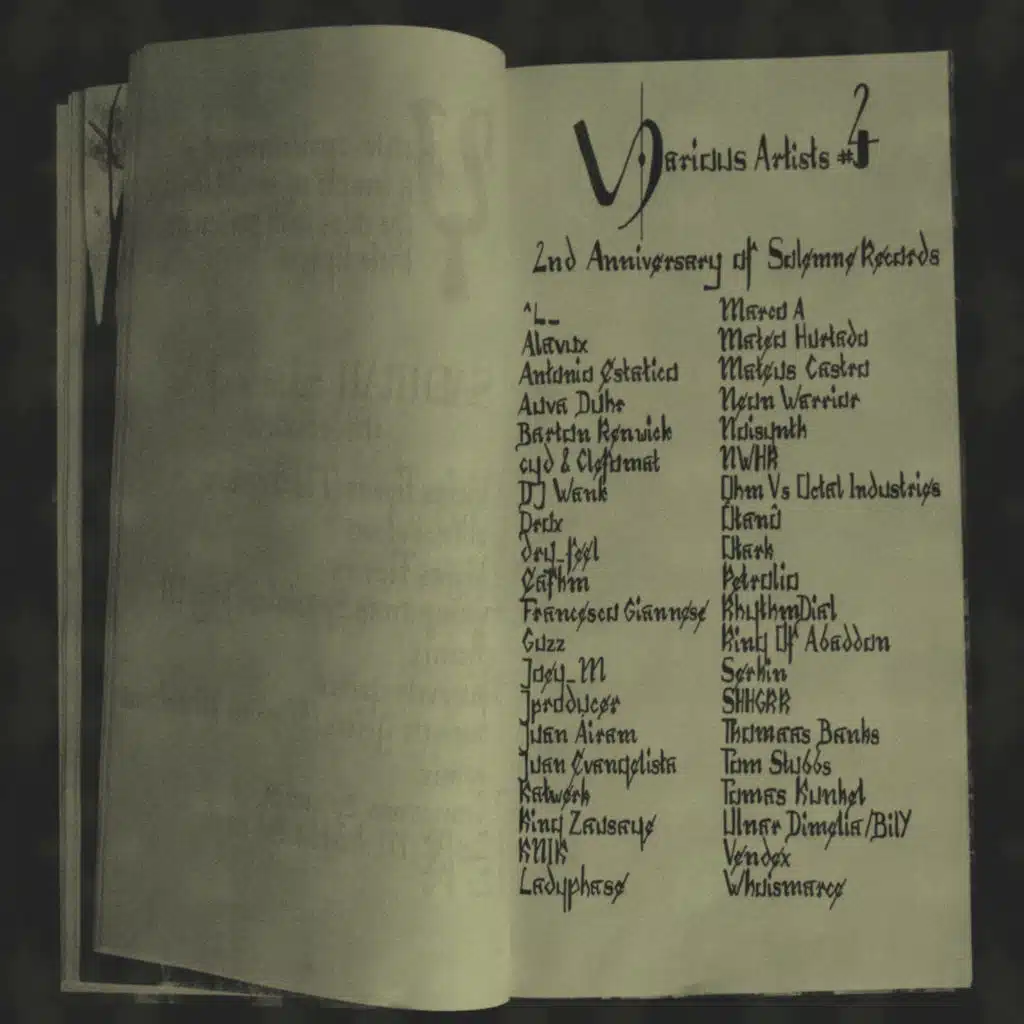 Various Artists #4
2nd Anniversary of Solemne Records
^L_
Alavux
Antonio Estatico
Auva Duhr
Barton Renwick
cyd & Clefomat
DJ Wank
Drox
dry_feel
Eafhm
Francesco Giannese
Guzz
Joey_M
Jproducer
Juan Airam
Juan Evangelista
Katwerk
King Zausage
KNIK
Ladyphase
Marco A
Mateo Hurtado
Mateus Castro
Neon Warrior
Noisynth
NWHR
Ohm Vs Octal Industries
Otark
Petrolio
RhythmDial
Ring Of Abaddon
Serkin
SHHGRR
Thomaas Banks
Tom Stubbs
Tomas Kunkel
Ulnar Dimelia/BilY
Vendex
Whoismarce